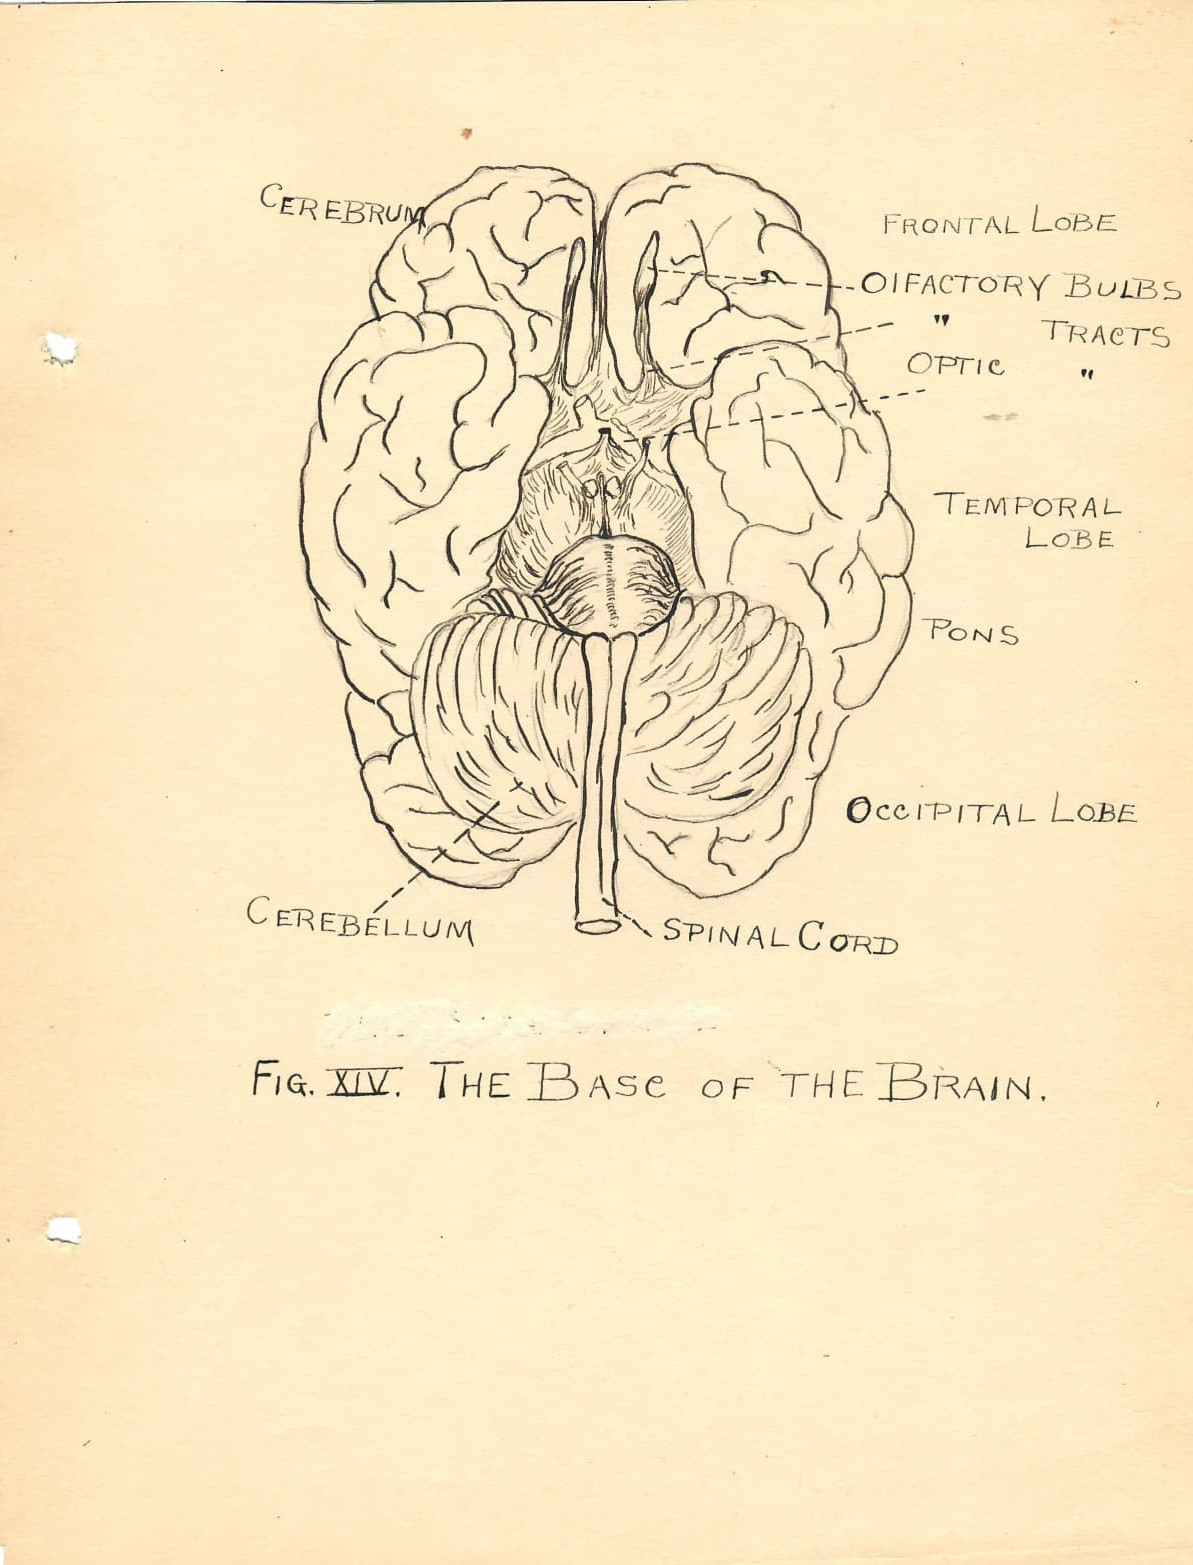 CEREBRUM
FRONTAL LOBE
OLFACTORY BULBS
" TRACTS
OPTIC "
TEMPORAL
LOBE
PONS
OCCIPITAL LOBE
CEREBELLUM
SPINAL CORD
FIG. XIV. THE BASE OF THE BRAIN.